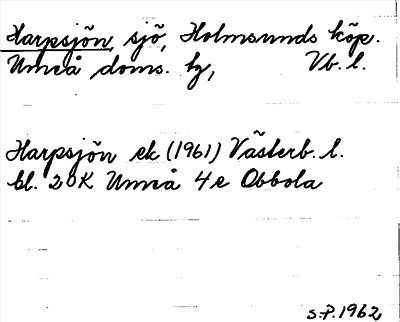 Harpsjön, sjö, Holmsunds köp.
Umeå doms. hg, Vb. l.
Harpsjön ek (1961) Västerb. l.
bl. 20K Umeå 4e Obbola
S.P. 1962